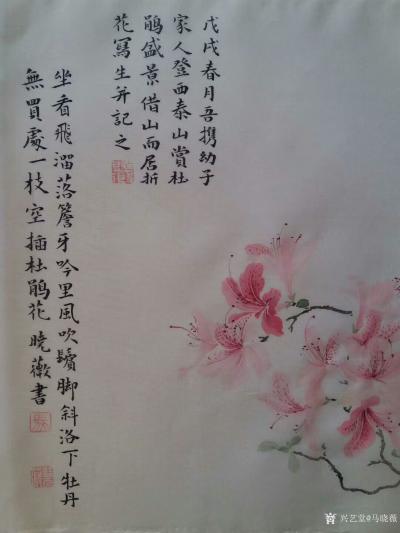 戊戌春月吾携幼子
家人登西泰山賞杜
鹃盛景借山而居折
花寫生并記之
坐看飛溜落簷牙吟里風吹鬢脚斜洛下牡丹
無買處一枝空插杜鹃花 晓薇書
兴艺堂@马晓薇